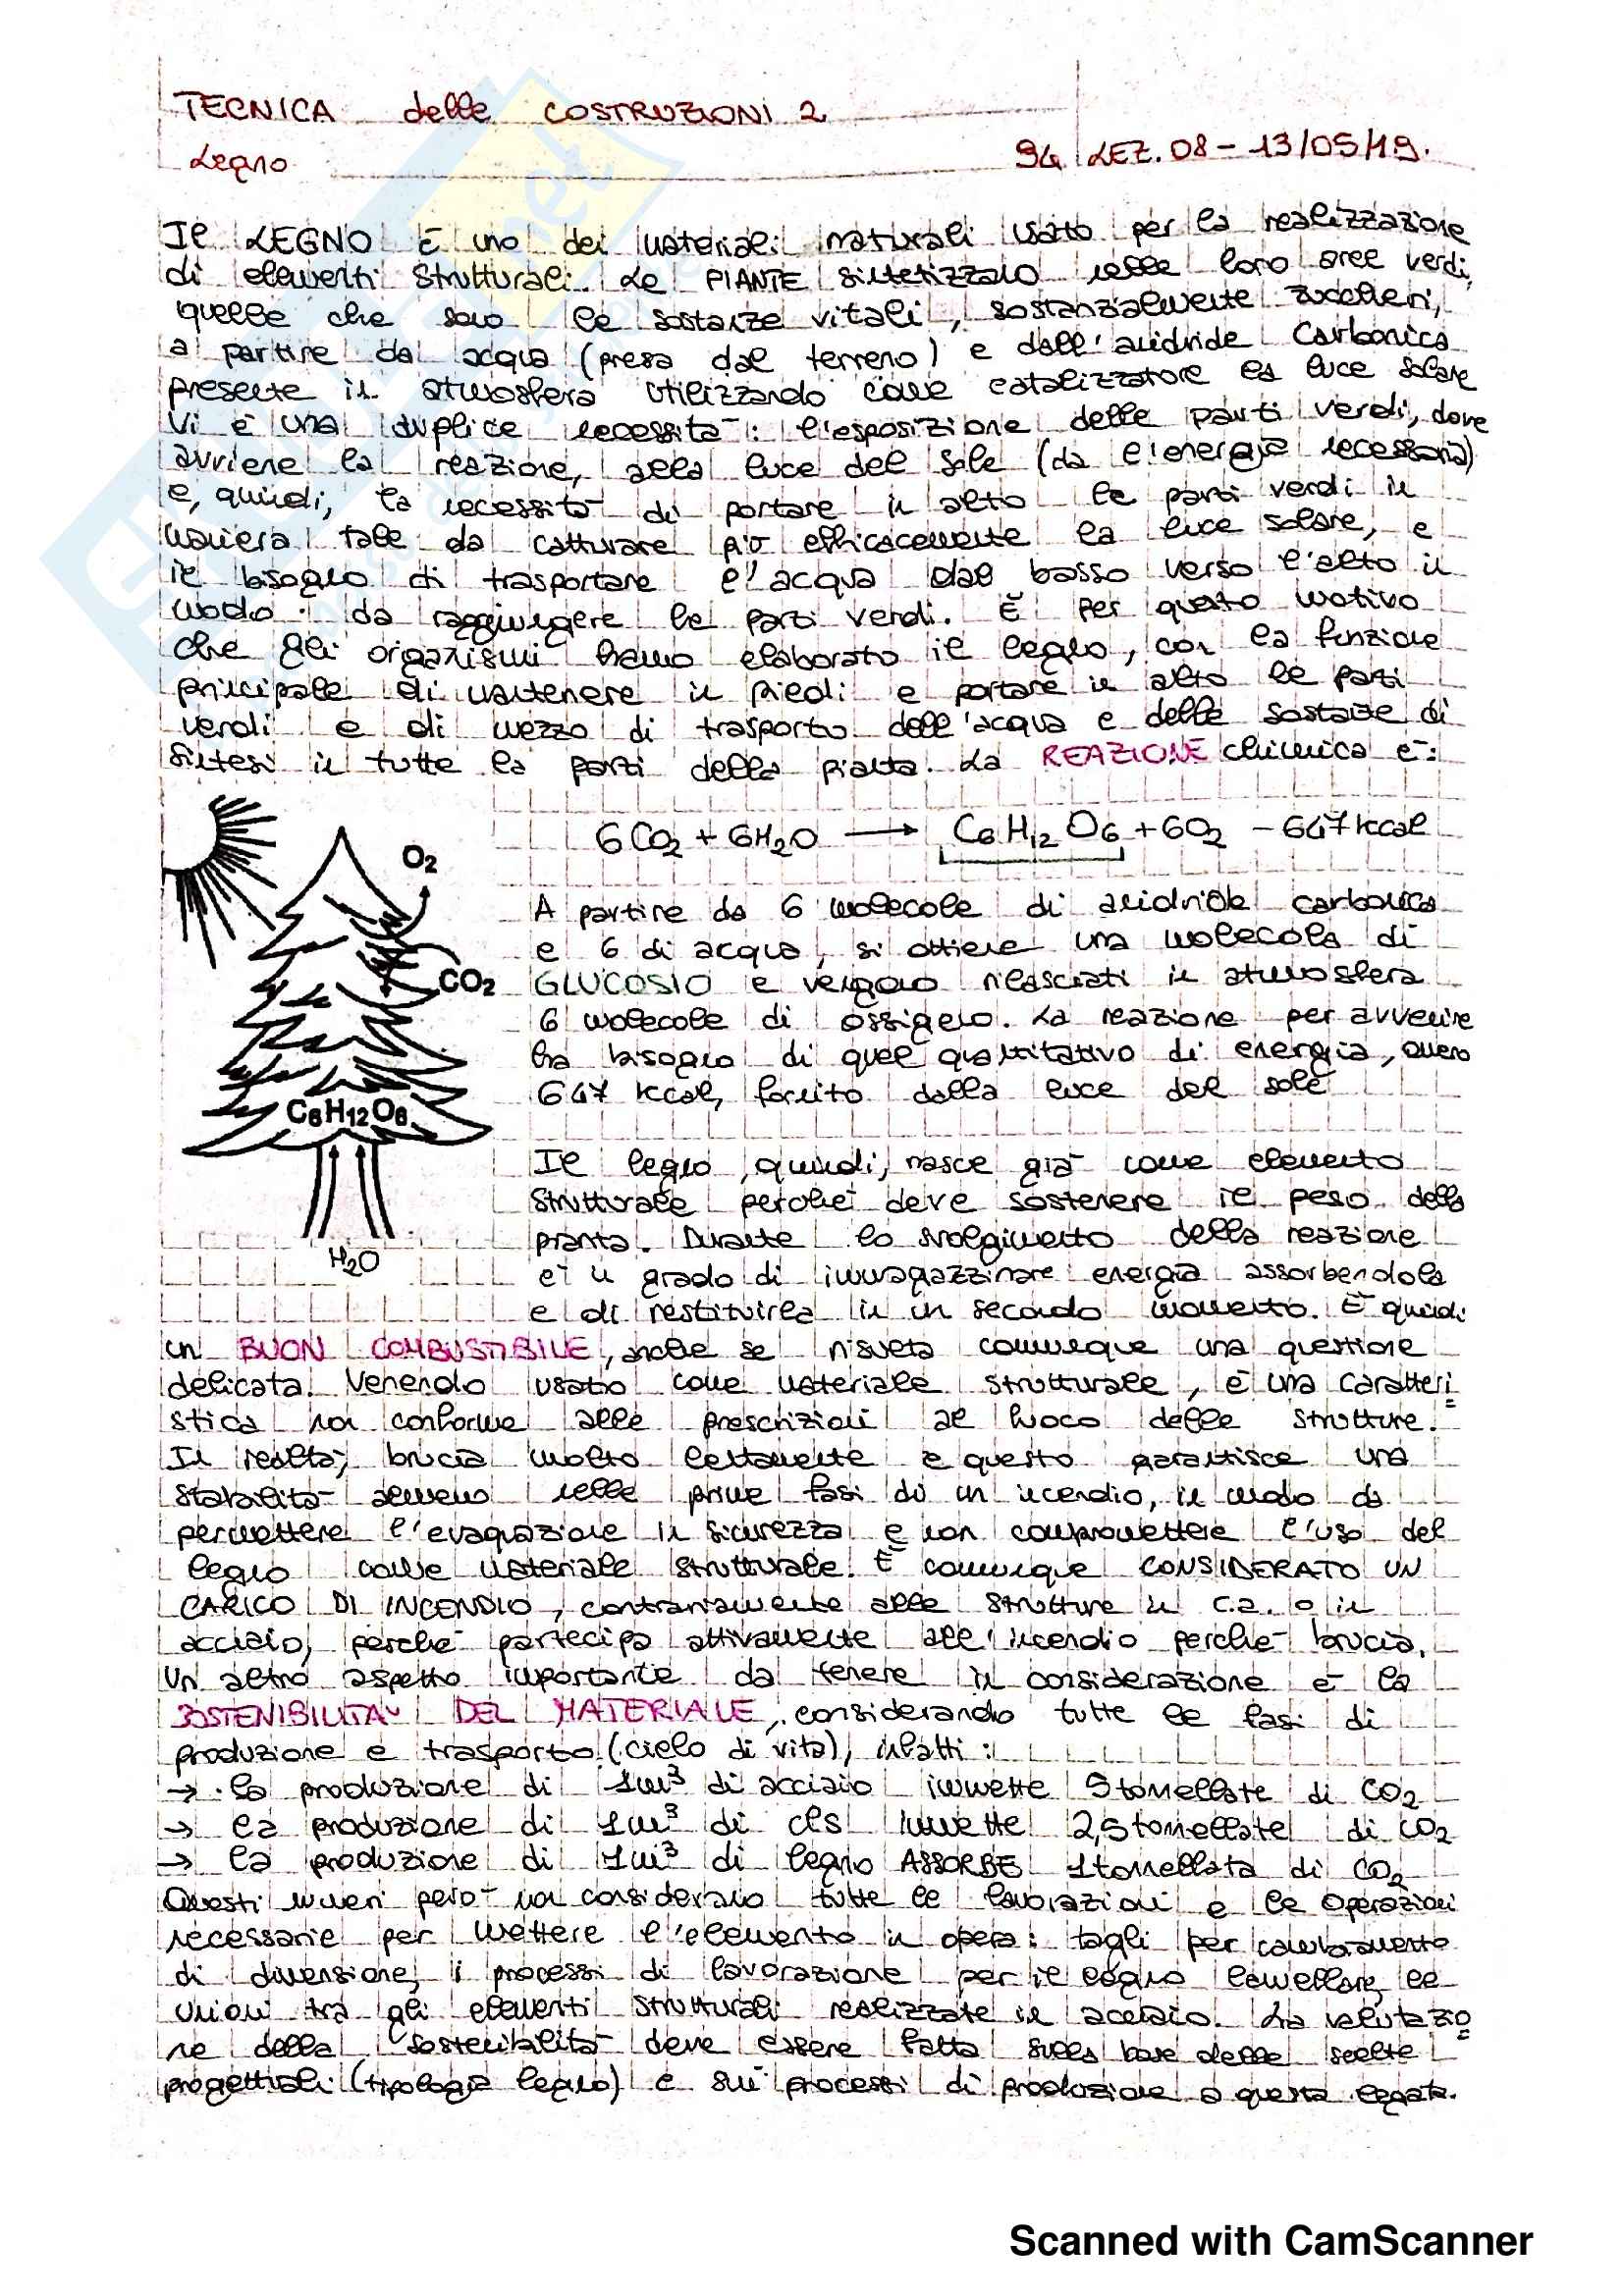 TECNICA delle COSTRUZIONI 2
Legno
94 LEZ. 08 - 13/05/19.
Il LEGNO è uno dei materiali naturali usato per la realizzazione
di elementi strutturali. Le PIANTE sintetizzano nelle loro aree verdi,
quelle che sono le sostanze vitali, sostanzialmente zuccheri,
a partire da acqua (presa dal terreno) e dall'anidride carbonica
presente in atmosfera utilizzando come catalizzatore la luce solare
Vi è una duplice necessità: l'esposizione delle parti verdi, dove
avviene la reazione, alla luce del sole (da l'energia necessaria)
e, quindi, la necessità di portare in alto le parti verdi in
maniera tale da catturare più efficacemente la luce solare, e
il bisogno di trasportare l'acqua dal basso verso l'alto in
modo da raggiungere le parti verdi. È per questo motivo
che gli organismi hanno elaborato il legno, con la funzione
principale di mantenere in piedi e portare in alto le parti
verdi e di mezzo di trasporto dell'acqua e delle sostanze di
sintesi in tutte le parti della pianta. La REAZIONE chimica è:
6CO2 + 6H2O → C6H12O6 + 6O2 - 647 kcal
O2
CO2
C6H12O6
H2O
A partire da 6 molecole di anidride carbonica
e 6 di acqua, si ottiene una molecola di
GLUCOSIO e vengono rilasciati in atmosfera
6 molecole di ossigeno. La reazione per avvenire
ha bisogno di quel quantitativo di energia, ovvero
647 kcal, fornito dalla luce del sole
Il legno, quindi, nasce già come elemento
strutturale perché deve sostenere il peso della
pianta. Durante lo svolgimento della reazione
è in grado di immagazzinare energia assorbendola
e di restituirla in un secondo momento. È quindi
un BUON COMBUSTIBILE, anche se risulta comunque una questione
delicata. Venendo usato come materiale strutturale, è una caratteri
stica non conforme alle prescrizioni al fuoco delle strutture.
In realtà, brucia molto lentamente e questo garantisce una
stabilità almeno nelle prime fasi di un incendio, in modo da
permettere l'evaquazione in sicurezza e non compromettere l'uso del
legno come materiale strutturale. È comunque CONSIDERATO UN
CARICO DI INCENDIO, contrariamente alle strutture in c.a. o in
acciaio, perché partecipa attivamente all'incendio perché brucia.
Un altro aspetto importante da tenere in considerazione è la
SOSTENIBILITA' DEL MATERIALE, considerando tutte le fasi di
produzione e trasporto (cielo di vita), infatti:
→ la produzione di 1m³ di acciaio immette 5 tonnellate di CO2
→ la produzione di 1m³ di cls immette 2,5 tonnellate di CO2
→ la produzione di 1m³ di legno ASSORBE 1 tonnellata di CO2
Questi numeri però non considerano tutte le lavorazioni e le operazioni
necessarie per mettere l'elemento in opera: tagli per cambiamento
di dimensione, i processi di lavorazione per il legno lamellare, le
unioni tra gli elementi strutturali realizzate in acciaio. La valutazio
ne della sostenibilità deve essere fatta sulla base delle scelte
progettuali (tipologia legno) e sui processi di produzione a questa legata.
Scanned with CamScanner